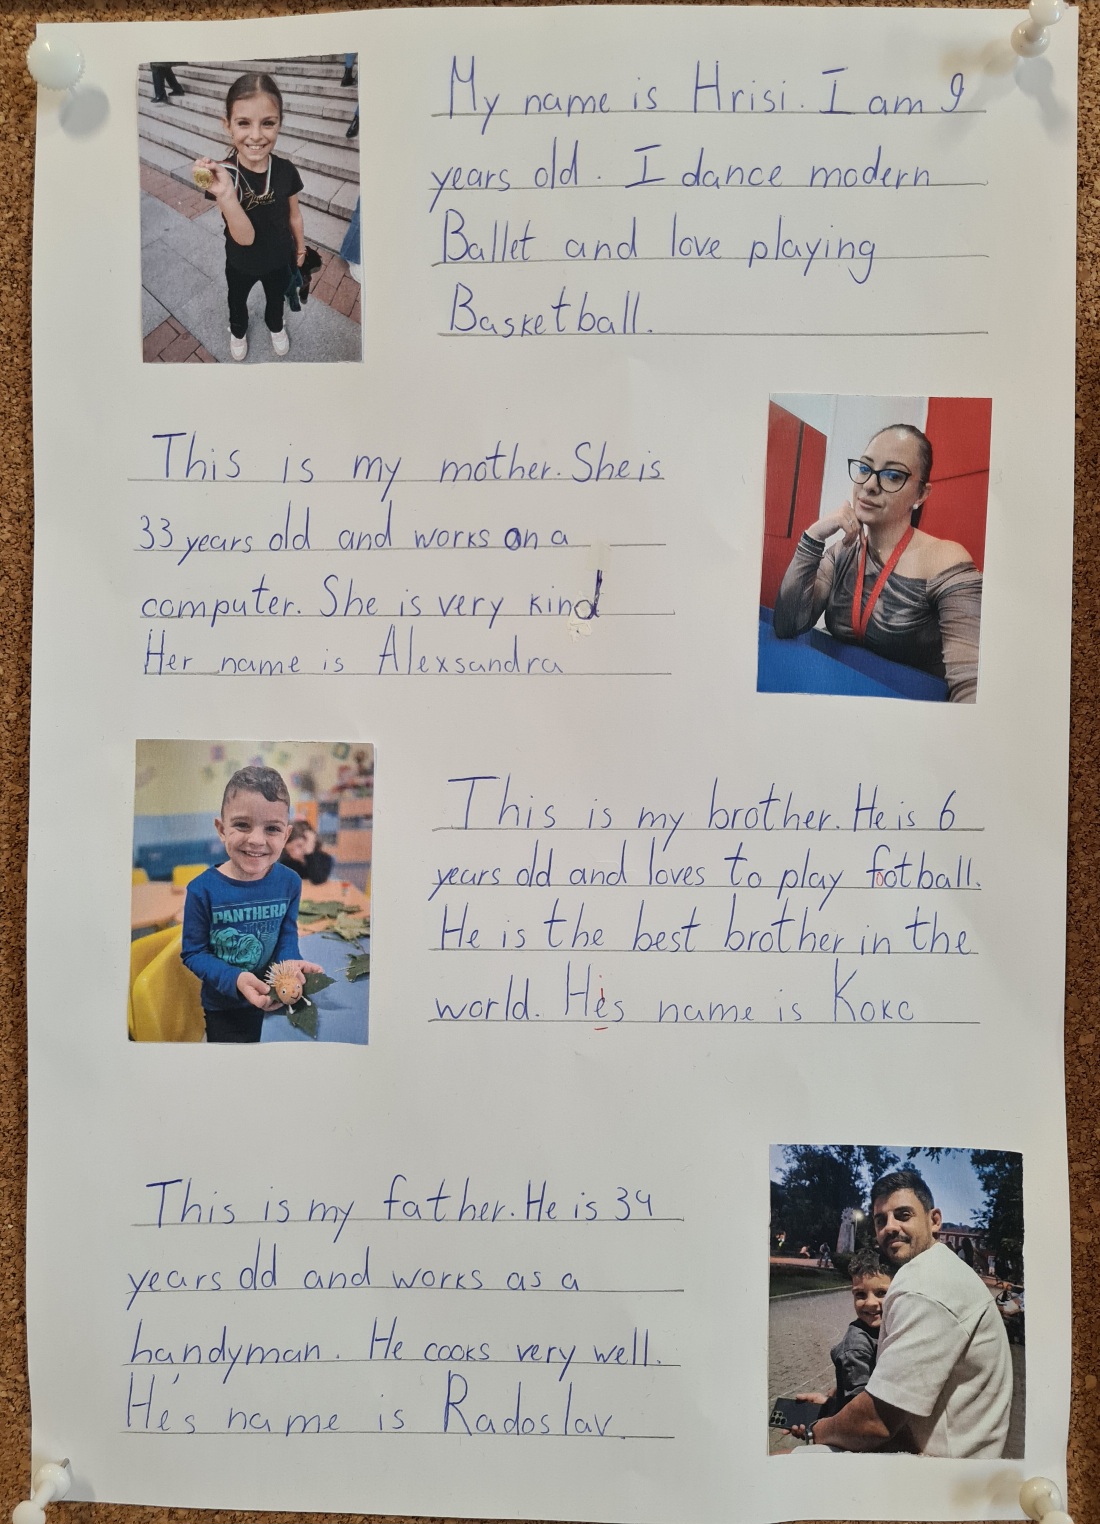 My name is Hrisi. I am 9
years old. I dance modern
Ballet and love playing
Basketball.
This is my mother. She is
33 years old and works on a
computer. She is very kind
Her name is Alexsandra
PANTHERA
This is my brother. He is 6
years old and loves to play football.
He is the best brother in the
world. His name is Koko
This is my father. He is 34
years old and works as a
handyman. He cooks very well.
He's name is Radoslav